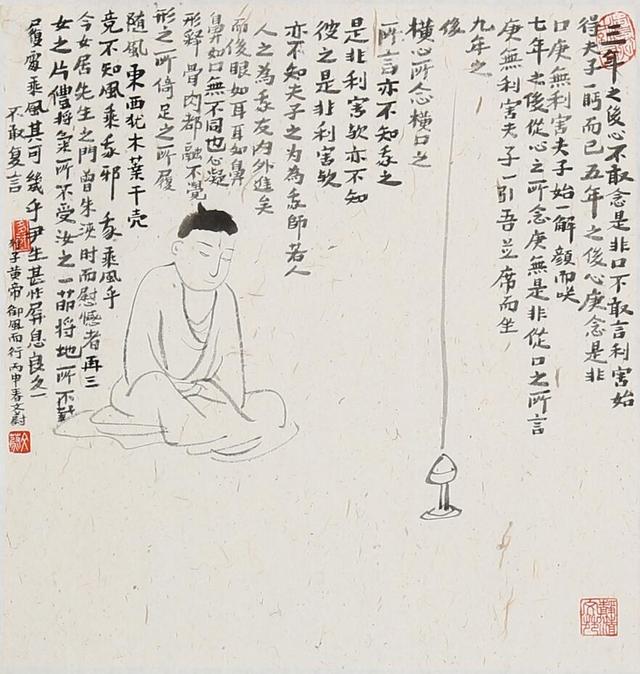 三年之後心不敢念是非口不敢言利害始
得夫子一眄而已五年之後心庚念是非
口庚無利害夫子始一解顏而咲
七年之後從心之所念庚無是非從口之所言
庚無利害夫子一引吾並席而坐
九年之
後
橫心所念橫口之
所言亦不知我之
是非利害歟亦不知
彼之是非利害歟
亦不知夫子之为為我師若人
人之為我友内外進矣
而後眼如耳耳如鼻
鼻如口無不同也心凝
形釋骨肉都融不覺
形之所倚足之所履
随風東西猶木葉干壳
竟不知風乘我邪我乘風乎
今女居先生之門曾未浹時而懟憾者再三
女之片體將氣所不受汝之一節將地所不載
履虛乘風其可幾乎尹生甚怍屏息良久
不敢复言
列子黄帝御風而行丙申春文尉